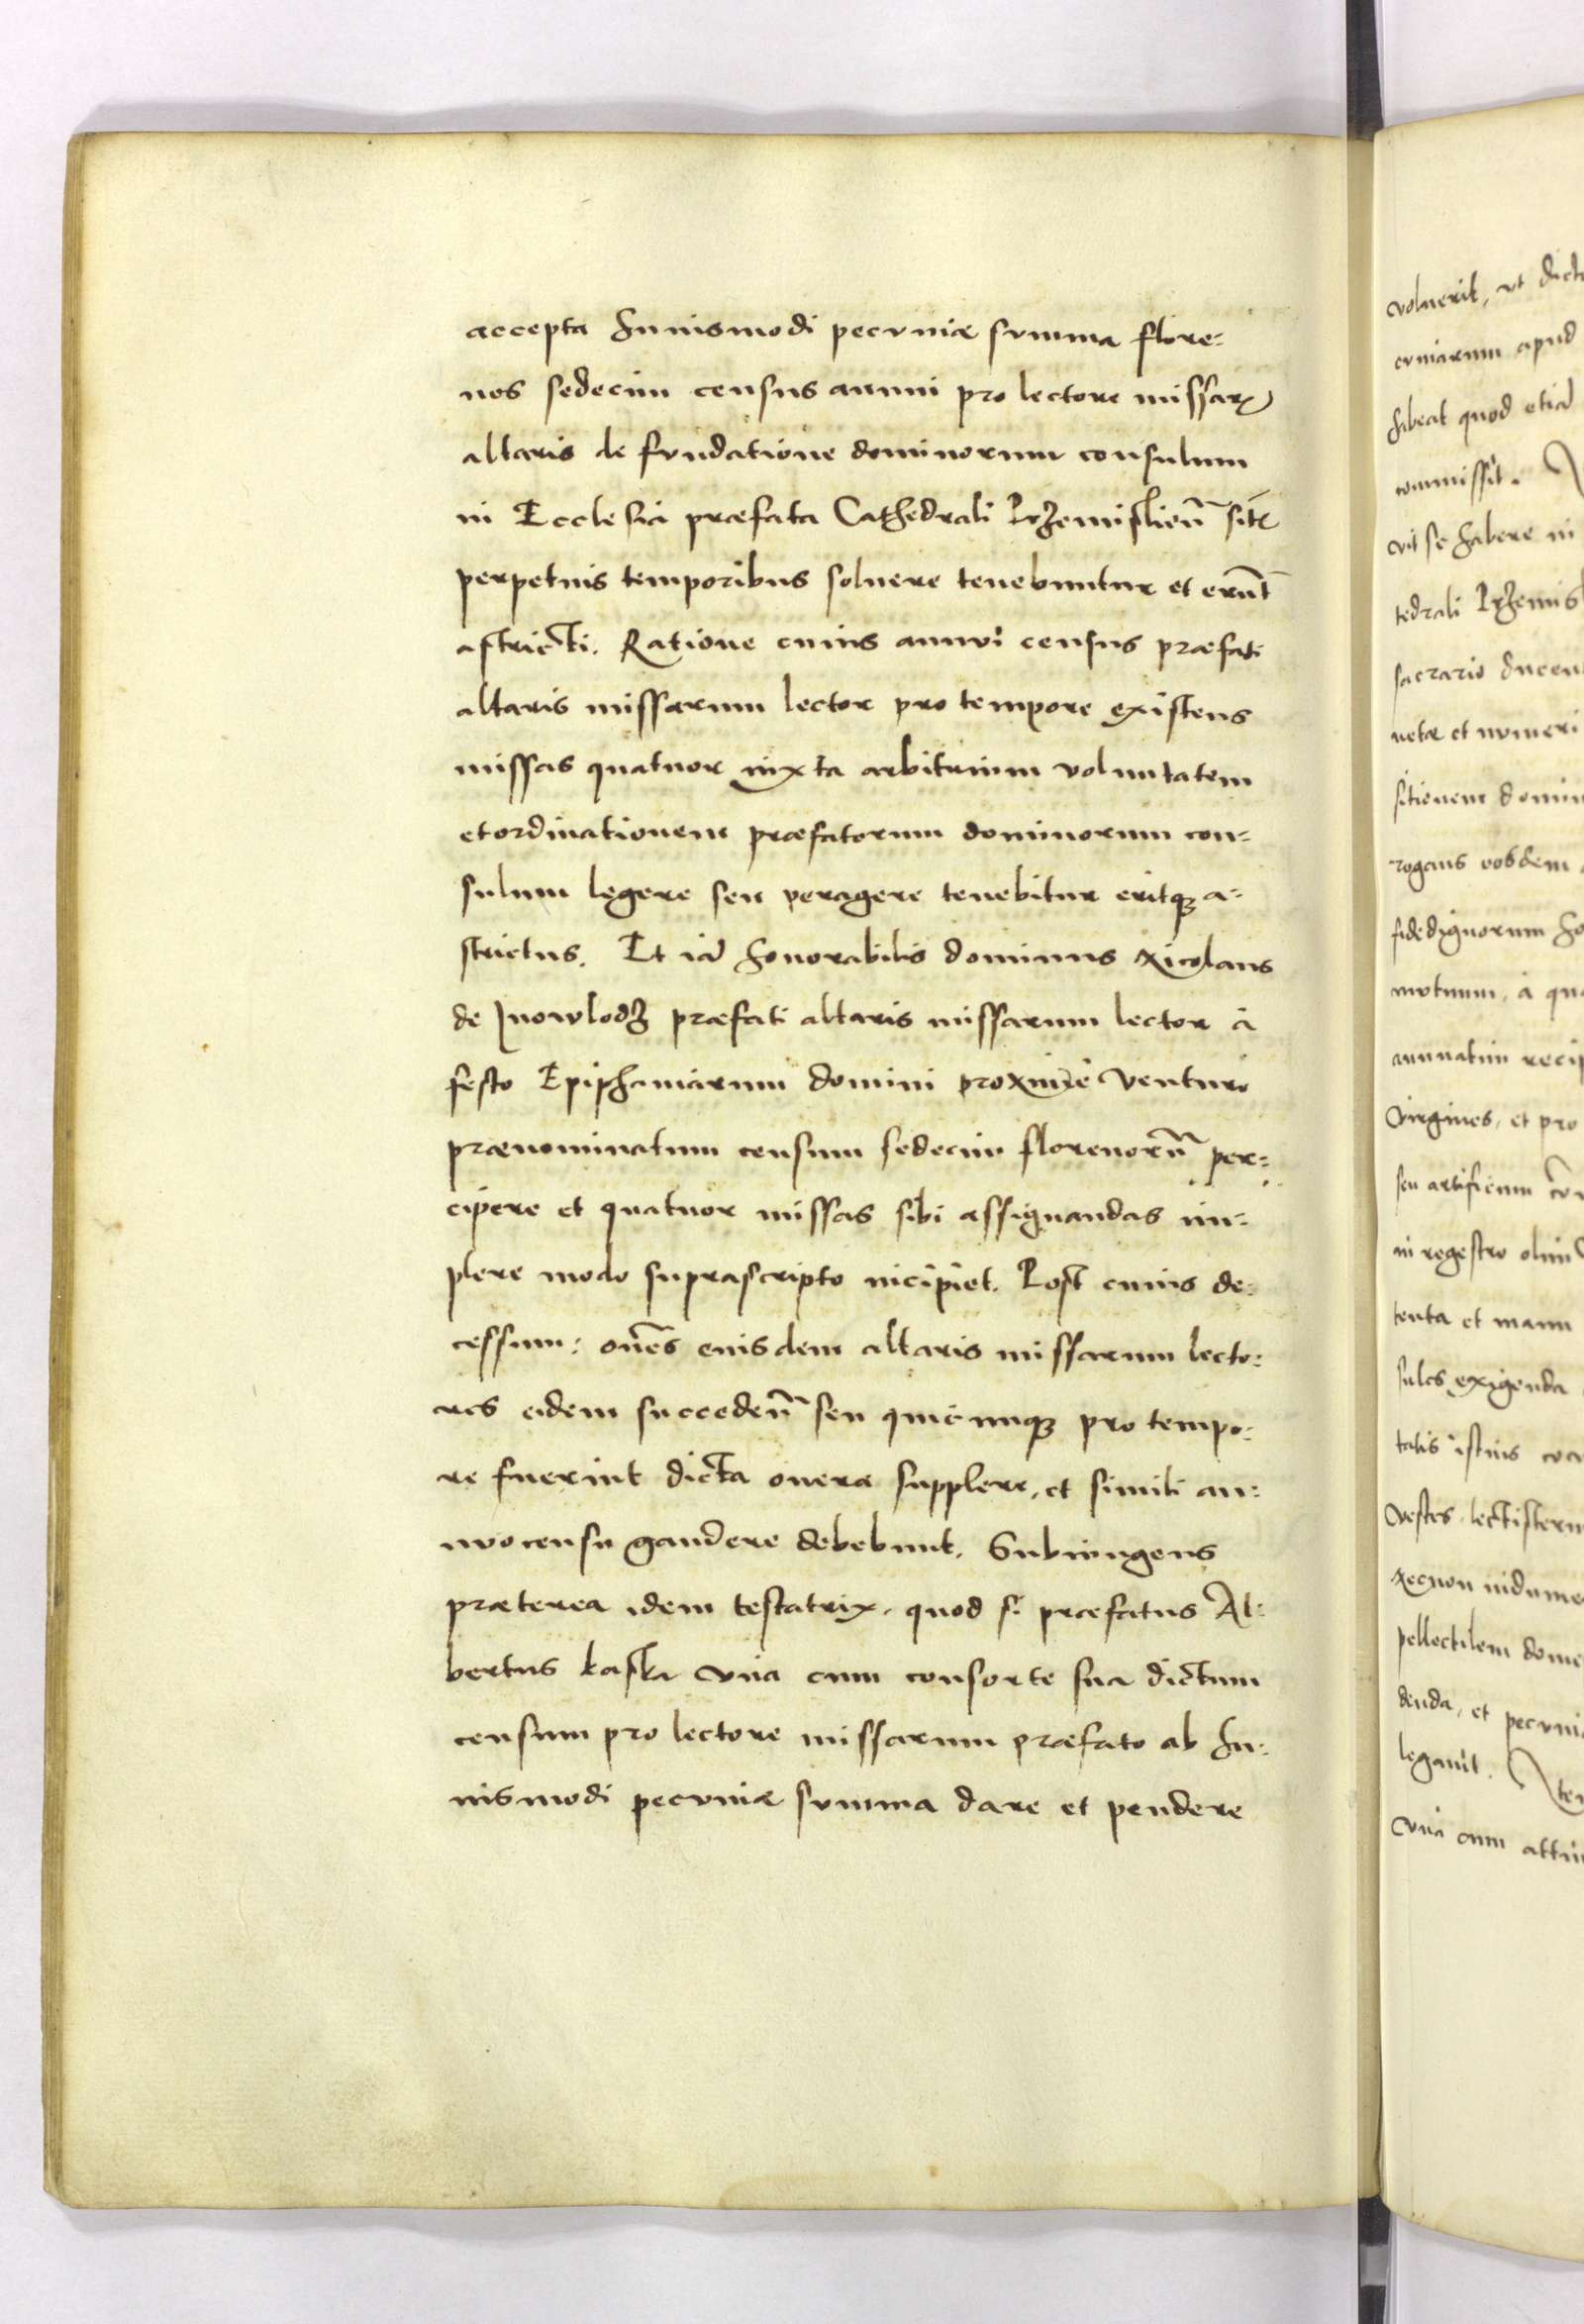 accepta huiusmodi pecuniæ summa flore-
nos sedecim census annui pro lectore missarꝝ
altaris de fundatione dominorum consulum
in Ecclesia præfata Cathedrali Przemislieñ sitꝭ
perpetuis temporibus soluere tenebuntur et erūt
astricti. Ratione cuius annui census præfati
altaris missarum lector pro tempore existens
missas quatuor iuxta arbitrium voluntatem
et ordinationem præfatorum dominorum con-
sulum legere seu peragere tenebitur eritqꝫ a-
strictus. Et iā honorabilis dominus Nicolaus
de Inowlodz præfati altaris missarum lector à
festo Epiphaniarum domini proximè venturo
prænominatum censum sedecim florenorū per-
cipere et quatuor missas sibi assignandas im-
plere modo suprascripto incipiet. Post cuius de-
cessum: oñes eiusdem altaris missarum lecto-
res eidem succedeñ seu quicunqꝫ pro tempo-
re fuerint dicta onera supplere, et simili an-
nuo censu gaudere debebunt. Subiungens
præterea idem testatrix, quod si præfatus Al-
bertus kaska vna cum consorte sua dictum
censum pro lectore missarum præfato ab hu-
iusmodi pecuniæ summa dare et pendere
voluerit, vt
cuniarum apud
habeat quod etiā
commissit.
vit se habere in
tedrali
sacrario
netæ et numeri
sitionem
rogans eosdem
fidedignorum
mutuum, à
annuatim
Virgines, et pro
seu artificum
in regestro olim
tenta et manu
sules exigenda
talis istius
vestes, lectistern
Necnon
pellectilem
denda, et
legauit.
vna cum